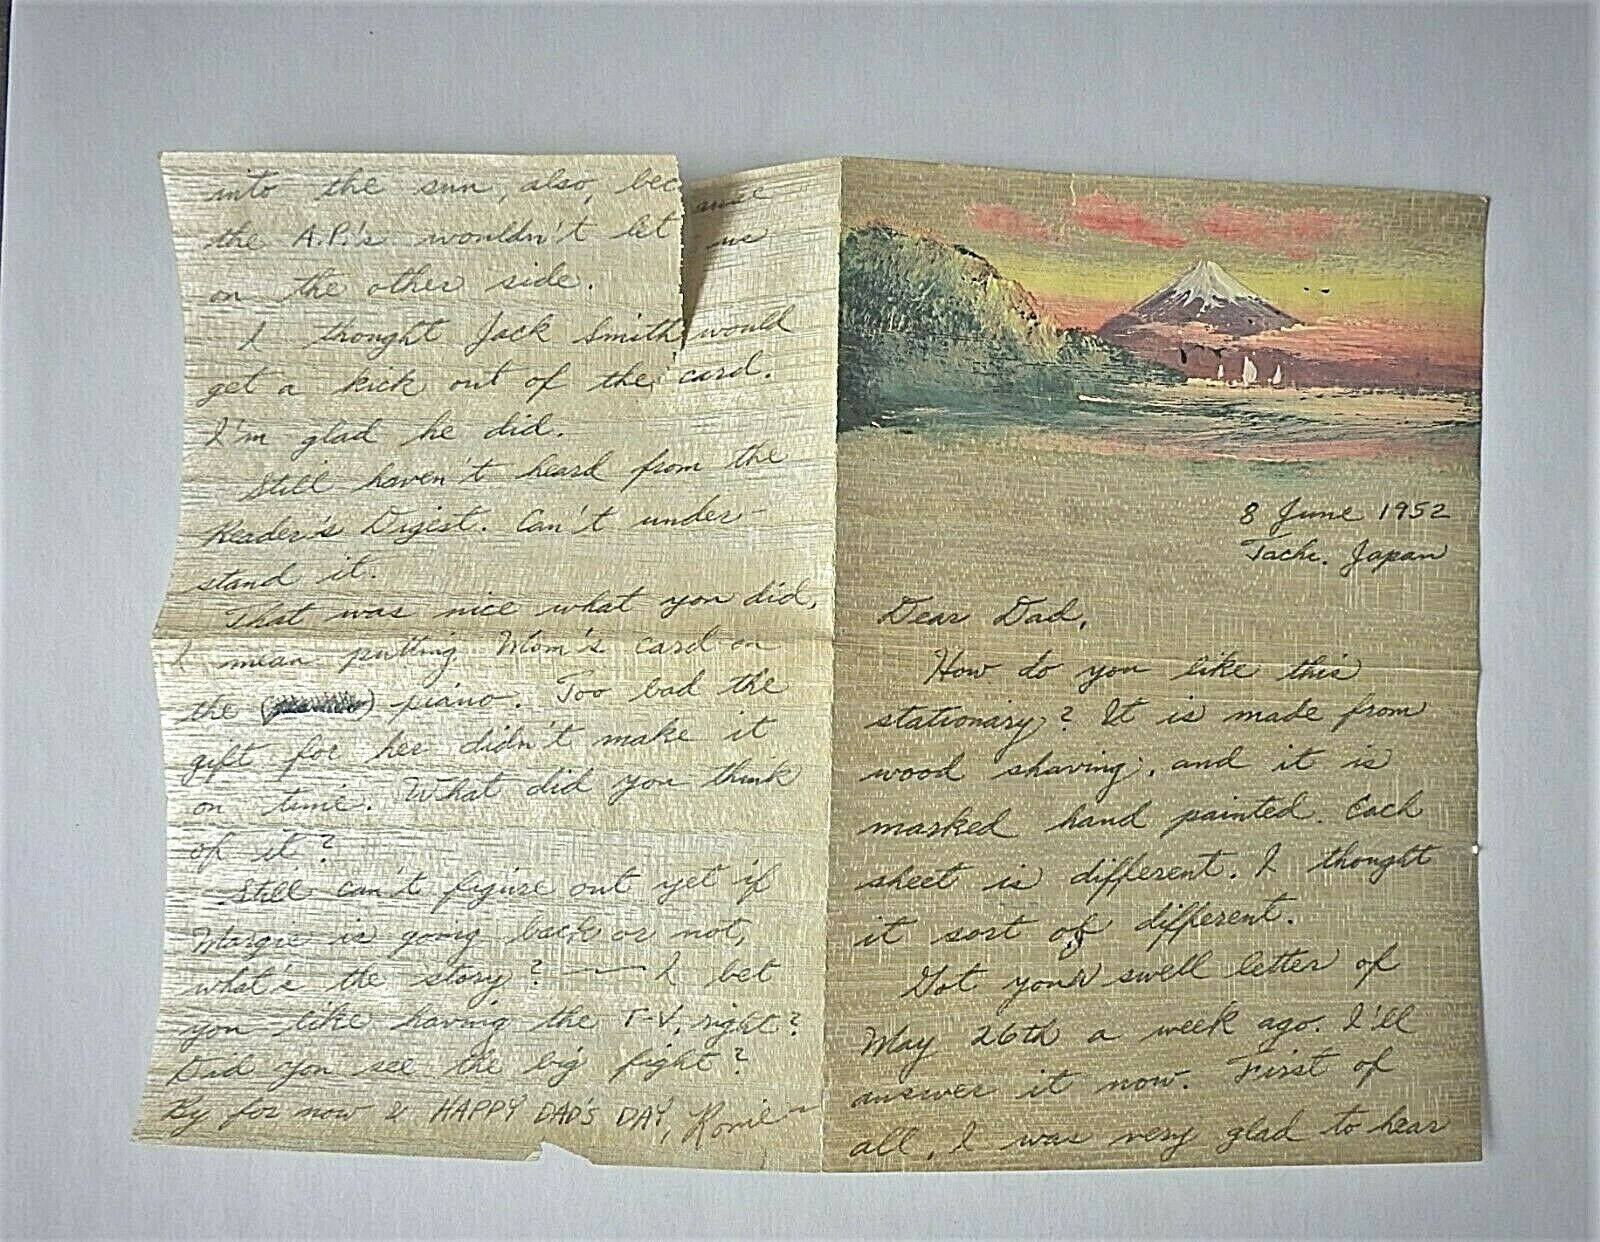 8 June 1952
Tachi. Japan
Dear Dad,
How do you like this
stationary? It is made from
wood shaving, and it is
marked hand painted. Each
sheet is different. I thought
it sort of different.
Got your swell letter of
May 26th a week ago. I'll
answer it now. First of
all, I was very glad to hear
into the sun, also, because
the A.P.'s wouldn't let us
on the other side.
I thought Jack Smith would
get a kick out of the card.
I'm glad he did.
Still haven't heard from the
Reader's Digest. Can't under-
stand it.
That was nice what you did,
I mean putting Mom's card on
the ( ) piano. Too bad the
gift for her didn't make it
on time. What did you think
of it?
Still can't figure out yet if
Margie is going back or not,
what's the story? — I bet
you like having the T-V, right?
Did you see the big fight?
By for now & HAPPY DAD'S DAY,